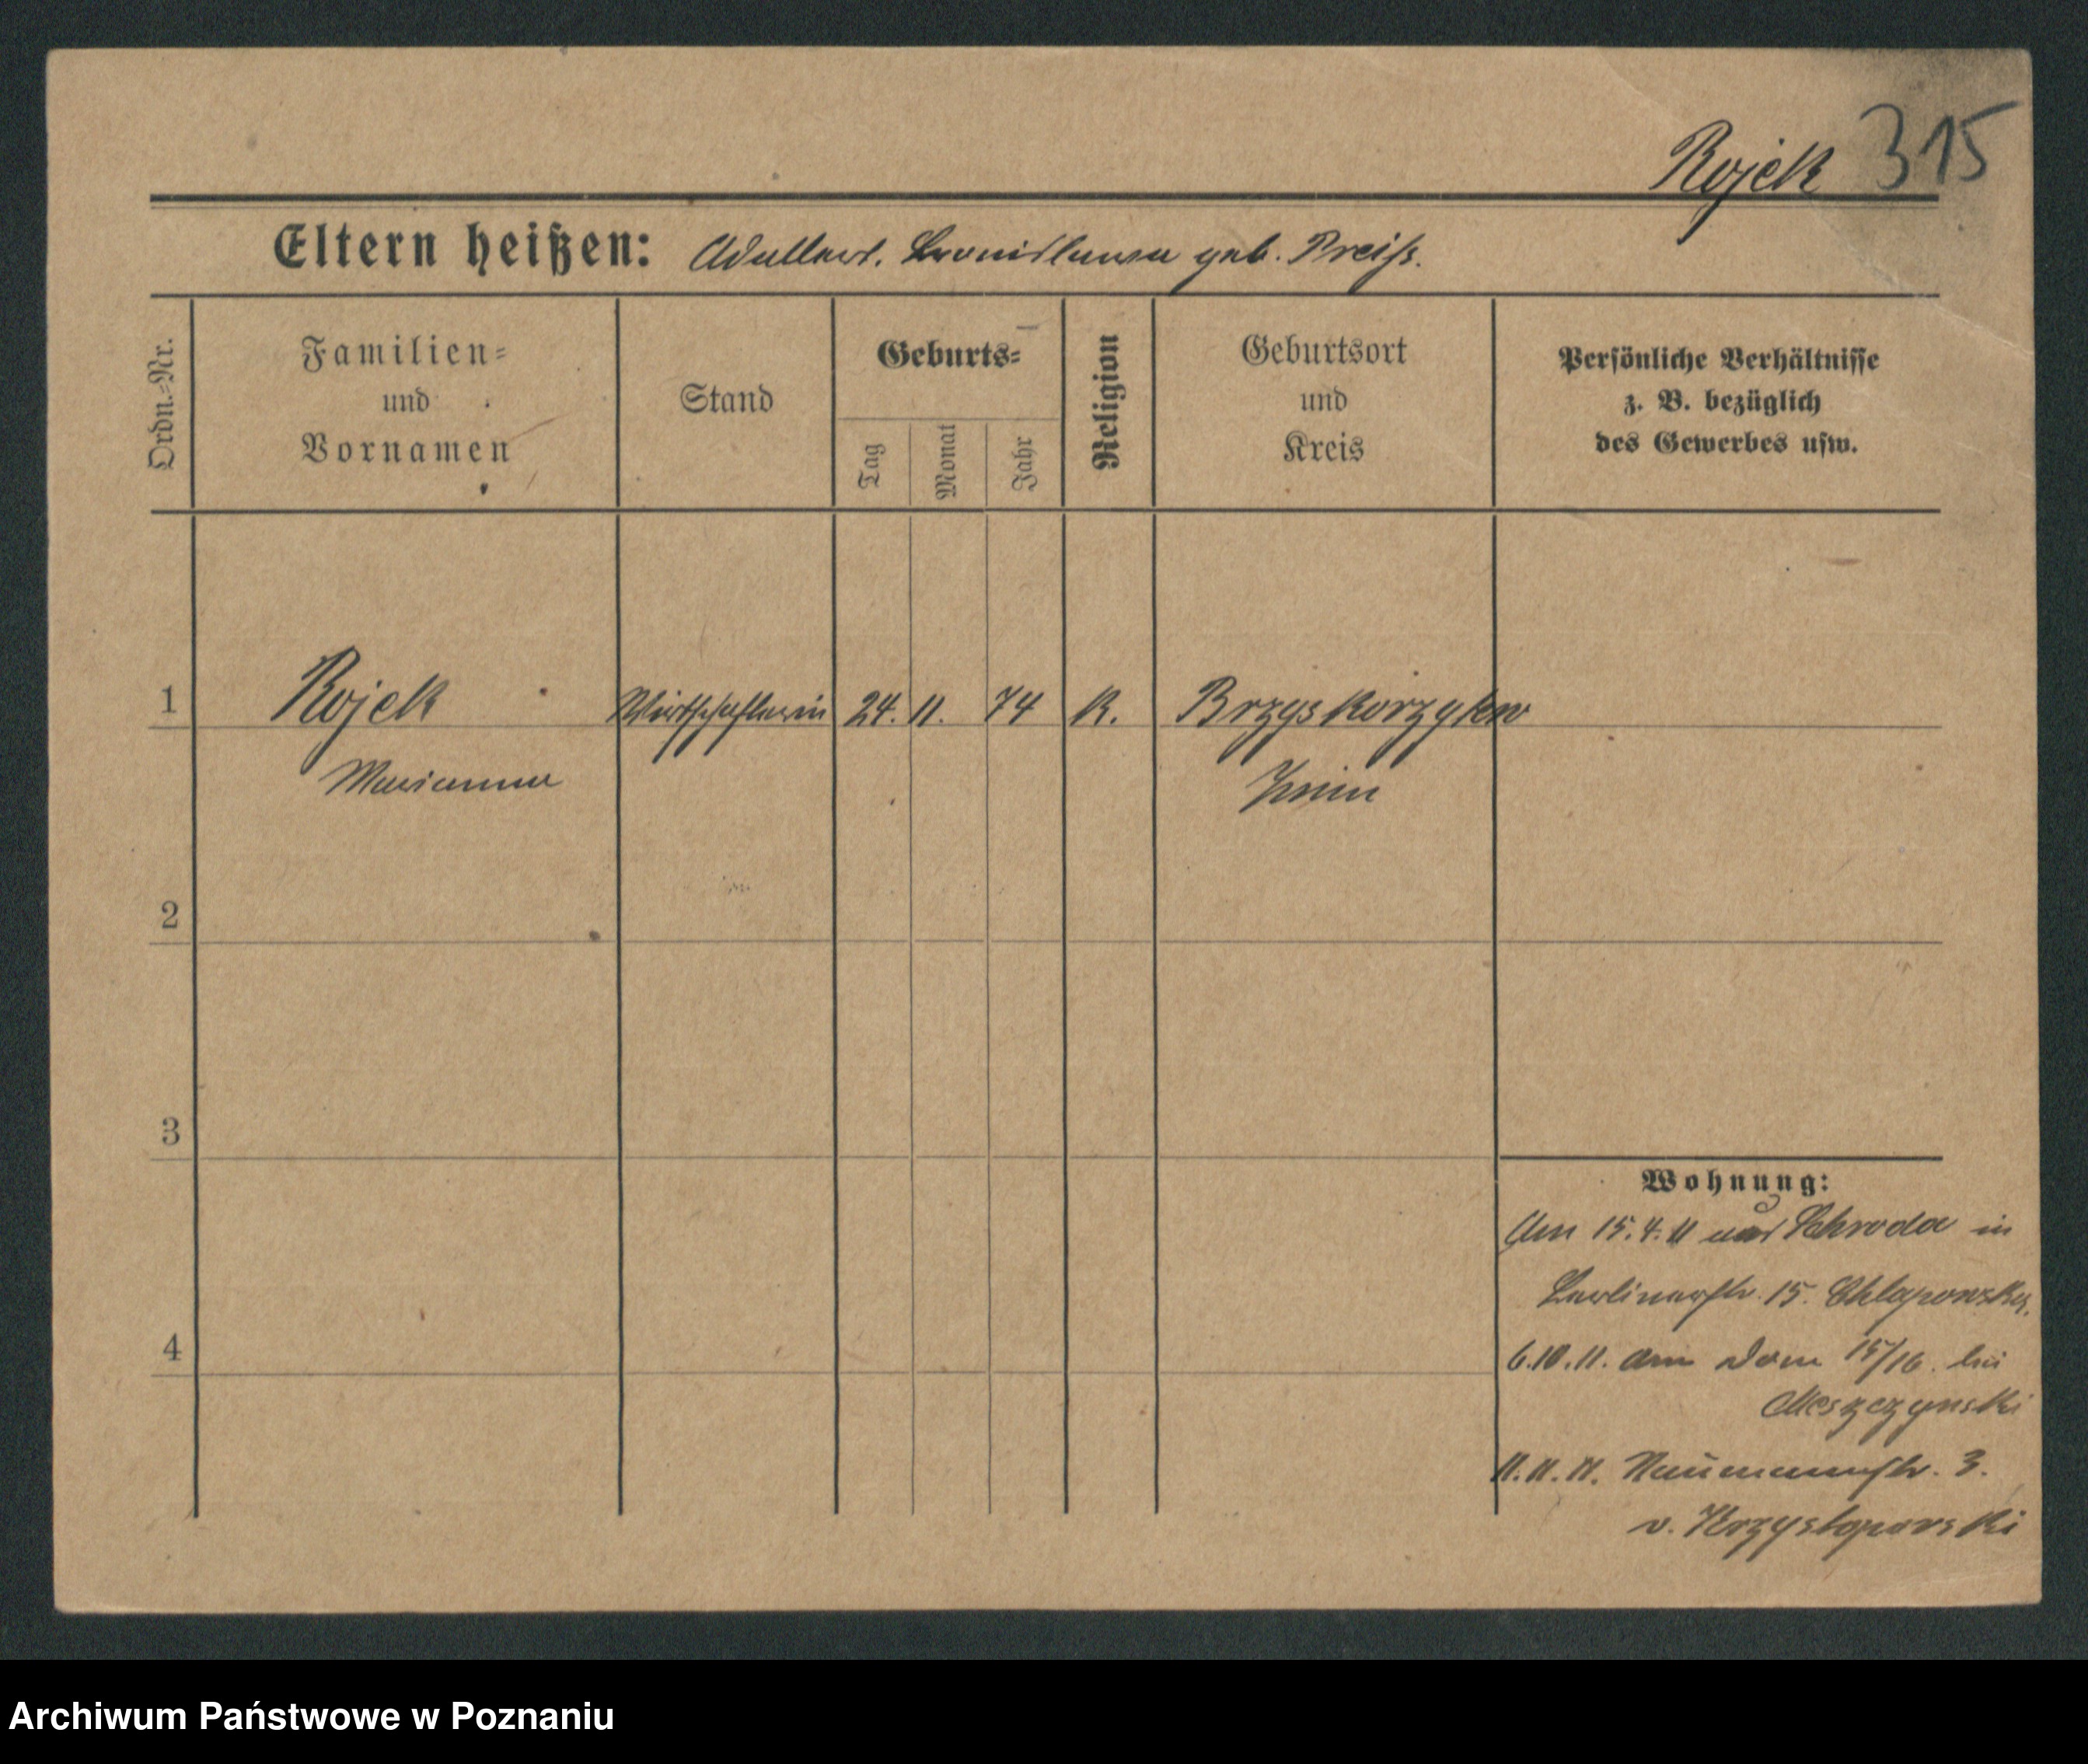 Rojek 315
Eltern heißen: Adalbert. Bronislawa geb. Preiß.
Ordn.=Nr.
Familien=
und
Vornamen
Stand
Geburts=
Tag
Monat
Jahr
Religion
Geburtsort
und
Kreis
Persönliche Verhältnisse
z. B. bezüglich
des Gewerbes usw.
1 Rojek Wirtschafterin 24. 11. 74 K. Brzyskorzystew
Marianna Znin
2
3
4
Wohnung:
Am 15.4.11 aus Schroda in
Berlinerstr. 15. Chlapowski,
6.10.11. Am Dom 15/16. bei
Meszczynski
11.11.11. Naumannstr. 3.
v. Krzystoporski
Archiwum Państwowe w Poznaniu